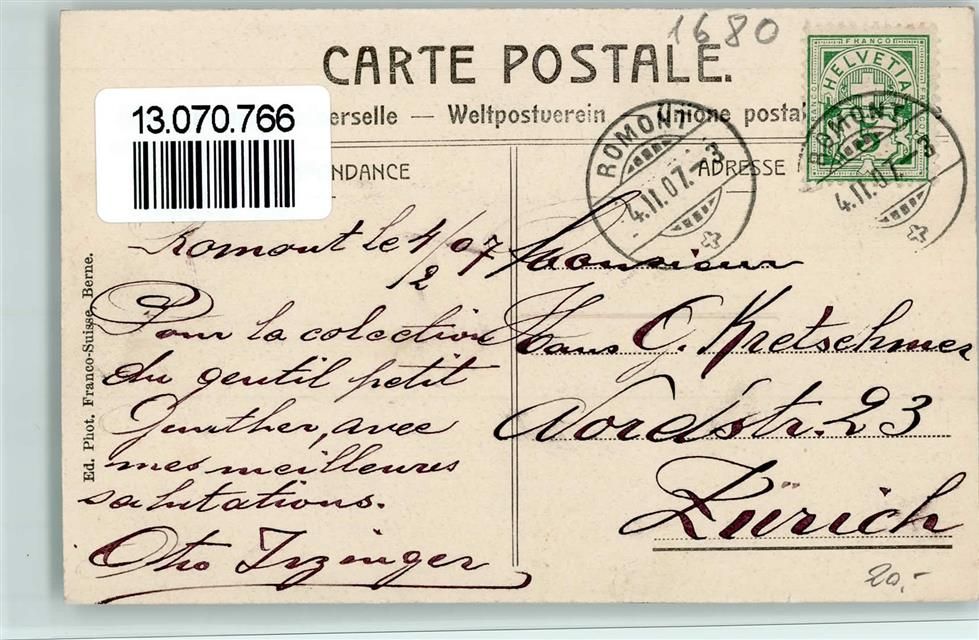 1680
CARTE POSTALE.
13.070.766
erselle — Weltpostverein — Unione postal
NDANCE
ADRESSE
FRANCO
HELVETIA
FRANCO
5
ROMONT
4.II.07.-3
ROMONT
4.II.07.-3
Romont le 4/2 07
Pour la colection
du gentil petit
Gunther, avec
mes meilleures
salutations.
Otto Irzinger
Monsieur
Hans G. Kretschmer
Nordstr. 23
Zürich
20,-
Ed. Phot. Franco-Suisse, Berne.